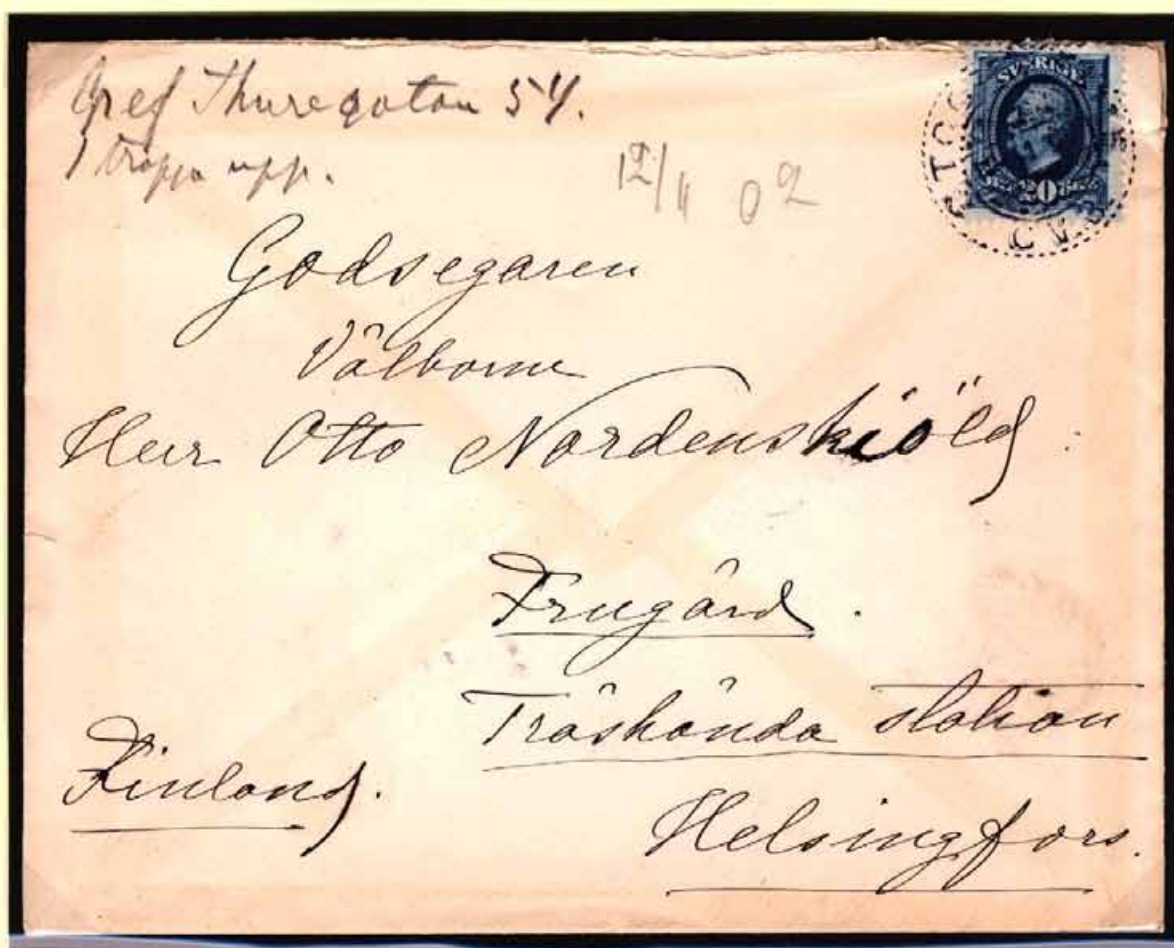 Gref Thuregatan 54.
1 trappa upp.
12/11 02
SVERIGE
20
Godsegaren
Välborne
Herr Otto Nordenskiöld
Frugård.
Träskända station
Finland.
Helsingfors.